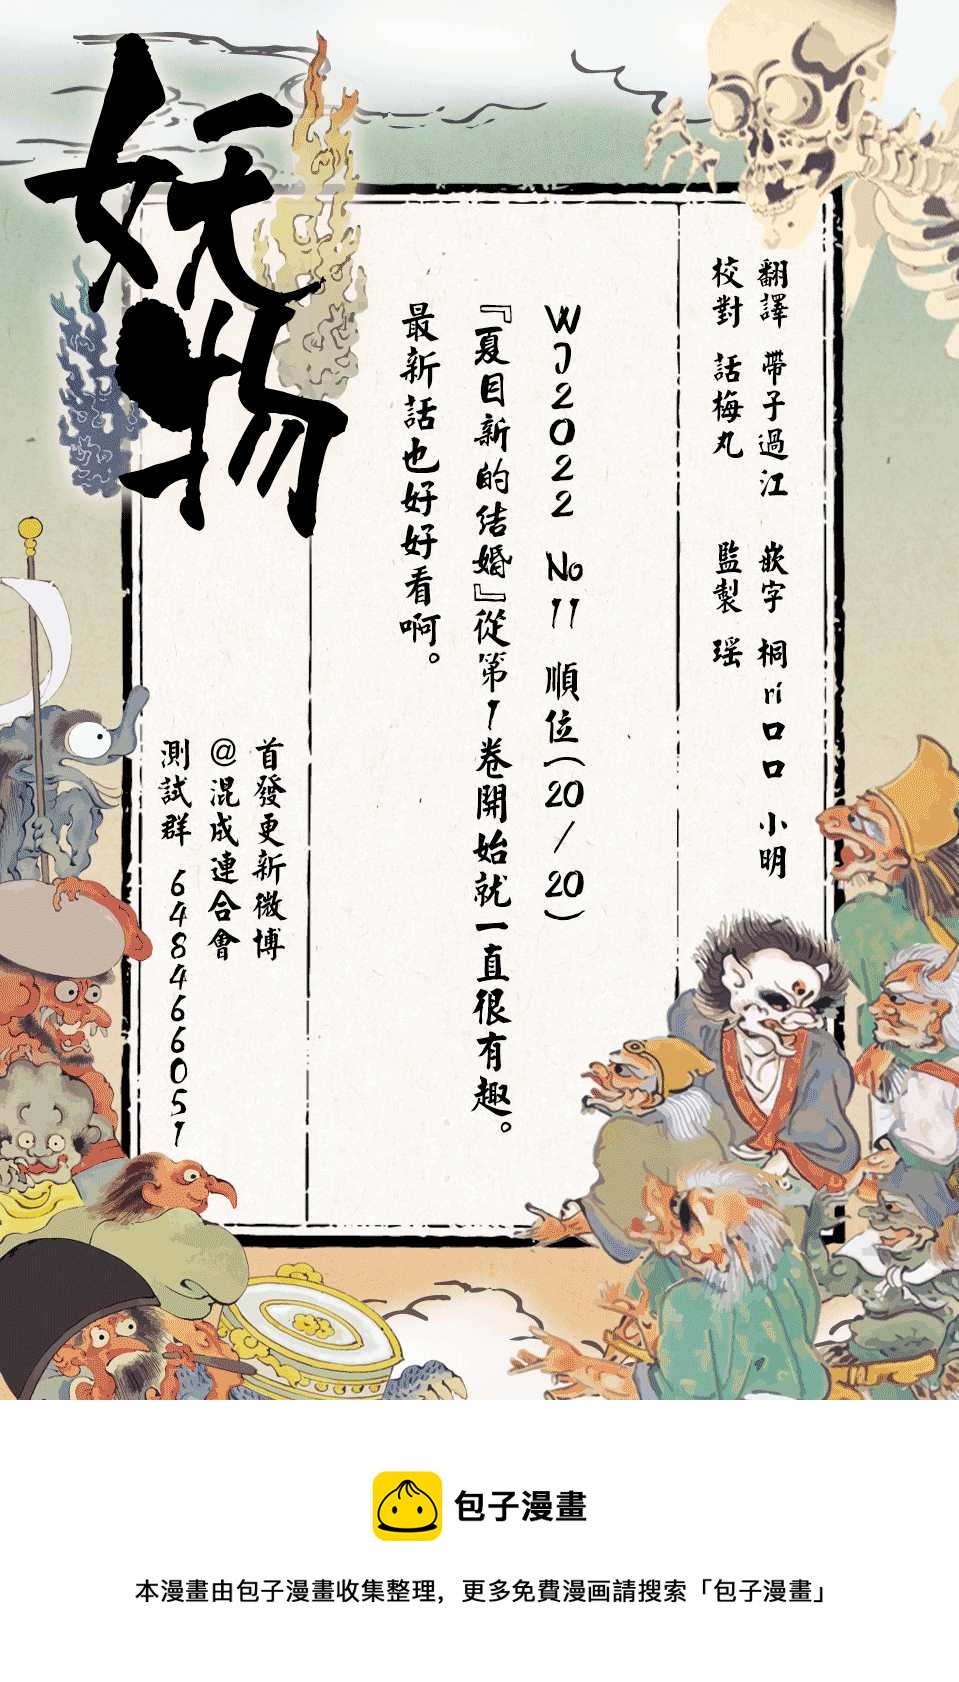 妖物
翻譯 帶子過江 嵌字 桐ri口口 小明
校對 話梅丸 監製 瑶
WJ2022 No11 順位(20/20)
『夏目新的結婚』從第1卷開始就一直很有趣。
最新話也好好看啊。
首發更新微博
@混成連合會
測試群 648466051
包子漫畫
本漫畫由包子漫畫收集整理,更多免費漫画請搜索「包子漫畫」